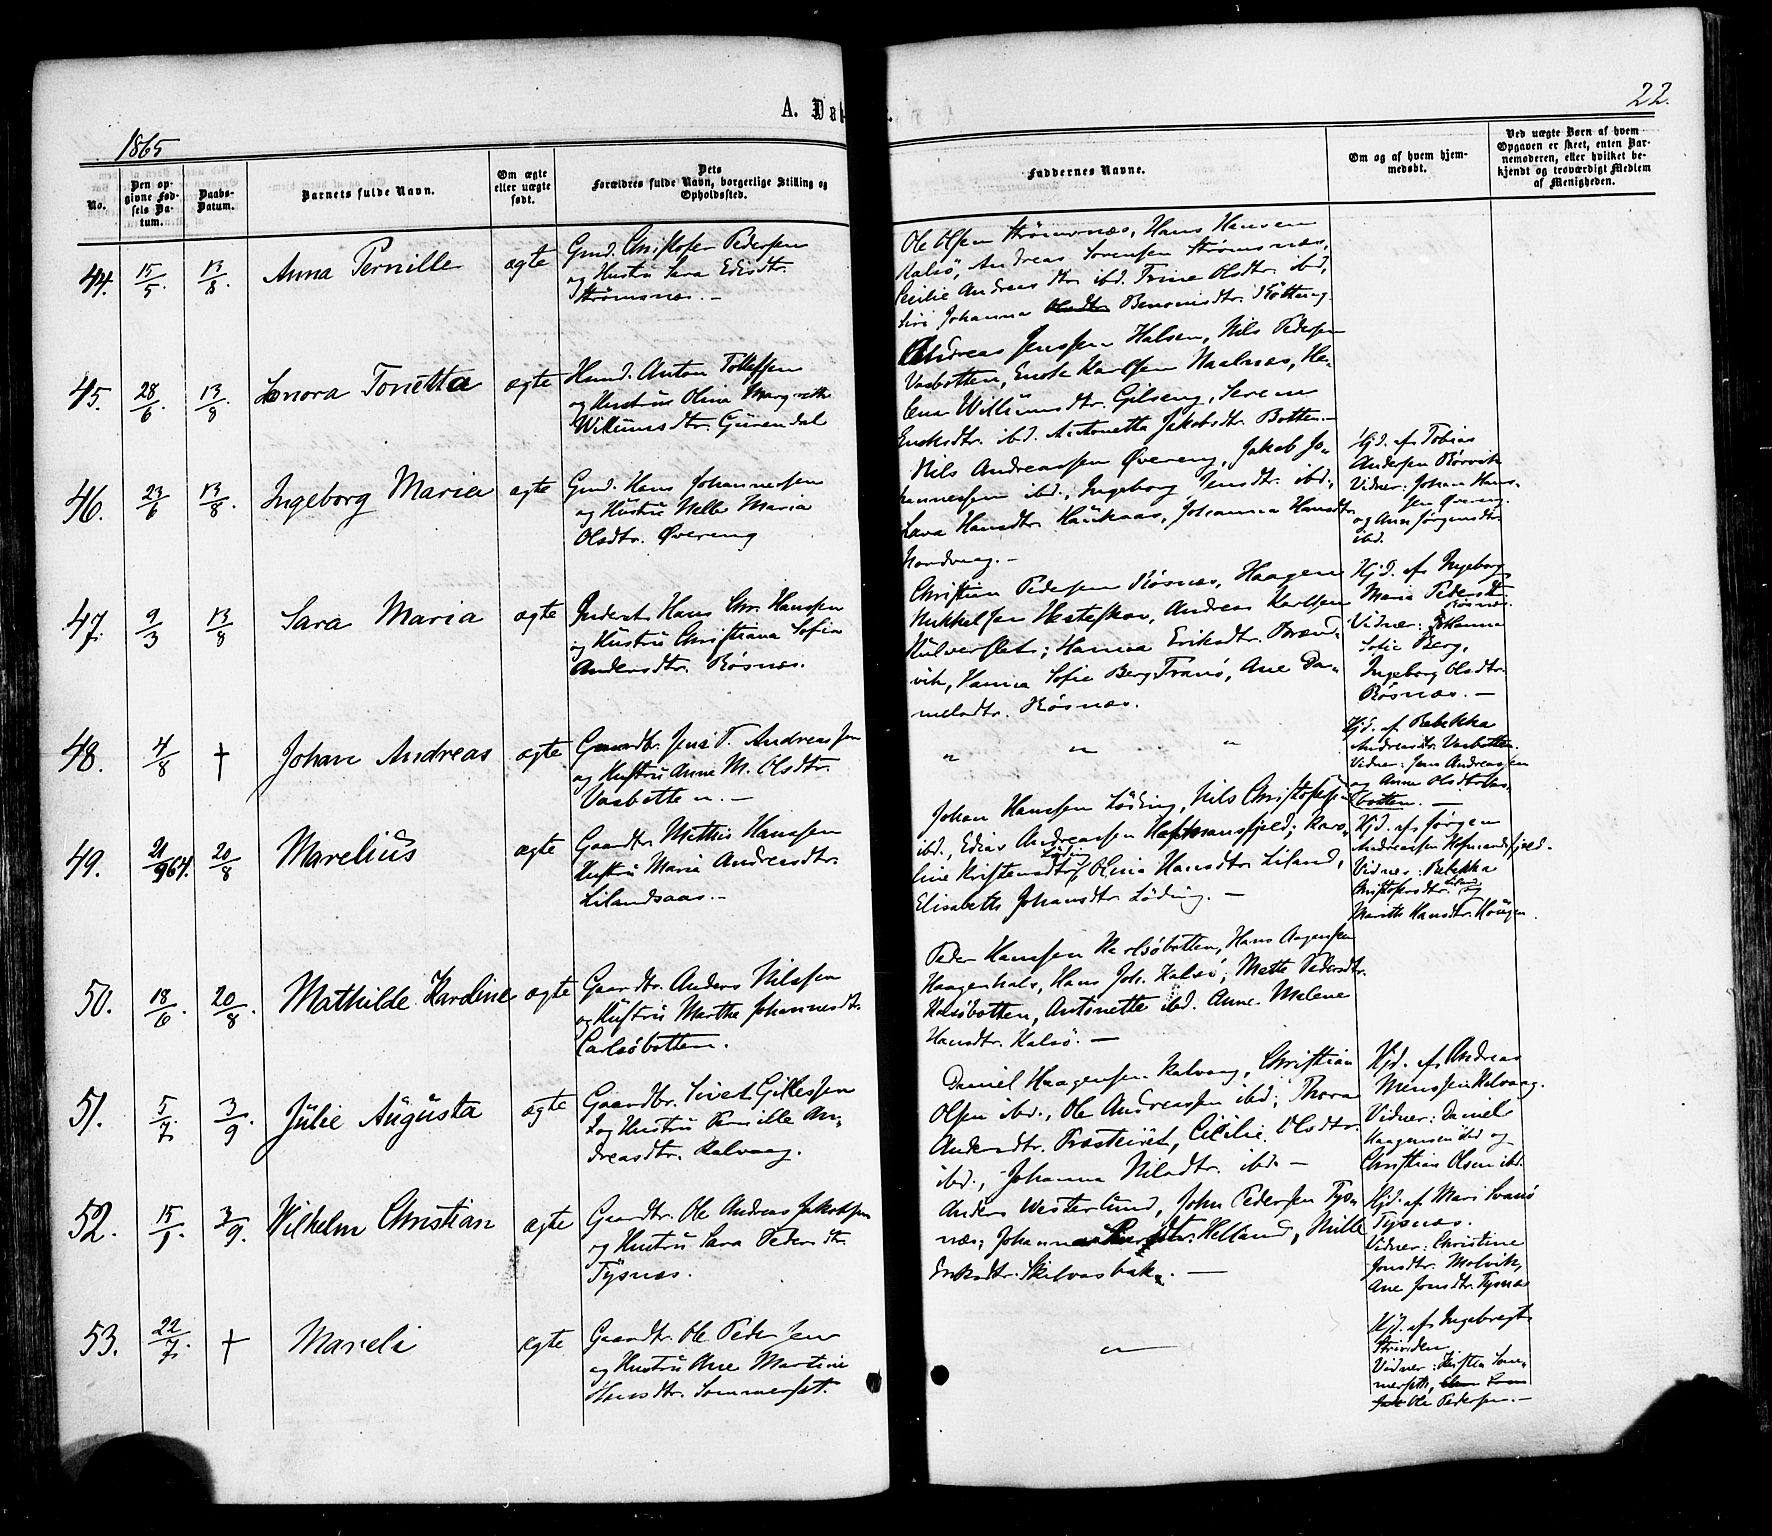 22.
A. Døbte.
1865
No.
Den op-
givne Fød-
sels Da-
tum.
Daabs-
Datum.
Barnets fulde Navn.
Om ægte
eller uægte
født.
Dets
Forældres fulde Navn, borgerlige Stilling og
Opholdssted.
Faddernes Navne.
Om og af hvem hjem-
medøbt.
Ved uægte Børn af hvem
Opgaven er skeet, enten Bar-
nemoderen, eller hvilket be-
kjendt og troværdigt Medlem
af Menigheden.
44. 15/5 13/8. Anna Pernille ægte
Gmd. Christofer Pedersen
og Hustru Sara Edisdtr.
Strømsnæs. —
Ole Olsen Strømsnæs, Hans Hansen
Kalsö, Andreas Sørensen Strømsnæs,
Cecilie Andreasdtr ibd. Trine Olsdtr. ibd,
Johanna Olsdtr. Benonisdtr.
45. 28/6. 13/8 Lenora Tonetta ægte
Hmd. Anton Tollefsen
og Hustru Olina Margrethe
Willumsdtr. Gürendal
Andreas Jenssen Halsen, Nils Pedersen
Vasbotten, Enok Karlsen Naalnæs, He-
lena Willumsdtr. Gilseng, Seren
Enoksdtr. ibd. Antonetta Jakobsdtr. Botten. —
46. 23/6 13/8. Ingeborg Maria ægte
Gmd. Hans Johannessen
og Hustru Nella Maria
Olsdtr. Øvereng
Nils Andreassen Øvereng, Jakob Jo-
hannessen ibd., Ingeborg Jensdtr. ibd.,
Lava Hansdtr. Haukaas, Johanna Hansdtr.
Nordvaag. —
Hjd. af Tobias
Andersen Rörvik
Vidner: Johan Hans-
sen Øvereng
og Ane Jörgensdtr.
ibd.
47. 9/3 13/8 Sara Maria ægte
Inderst Hans Chr. Hanssen
og Hustru Christiana Sofia
Andersdtr. Rösnæs.
Christian Pedersen Rösnæs, Haagen
Mikkelsen Hesteskov, Andreas Karlsen
Hulversletv; Hanna Eriksdtr. Brænd-
vik, Hanna Sofie Berg Tranö, Ane Da-
nielsdtr. Rösnæs.
Hjd. af Ingeborg
Maria Pedersdtr.
Rösnæs.
Vidner: Johanna
Sofie Berg,
Ingeborg Olsdtr.
Rösnæs. —
48. 4/8 † Johan Andreas ægte
Gaardbr. Jens P. Andreassen
og Hustru Anne M. Olsdtr.
Vasbotten. —
" " "
Hjd. af Rebekka
Andreasdtr. Vasbotten.
Vidner: Jens Andreassen
og Anne Olsdtr. Vas-
botten. —
49. 21/9 64. 20/8 Marelius ægte
Gaardbr. Mathis Hanssen
Hustru Maria Andreasdtr.
Lilandsaas. —
Johan Hanssen Löding, Nils Christofersen
ibd., Edias Andreassen Hofmansfjeld; Karo-
line Kristensdtr. Löding, Olina Hansdtr. Liland,
Elisabeth Johansdtr. Löding. —
Hjd. af Jörgen
Andreassen Hofmandsfjeld.
Vidner: Rebekka
Christofersdtr. Liland og
Marith Hansdtr. Haugen.
50. 18/6. 20/8. Mathilde Karoline ægte
Gaardbr. Anders Nilssen
og Hustru Marthe Johannesdtr.
Carlsöbotten.
Peder Hanssen Karlsöbotten, Hans Aagensen
Haagenhals, Hans Joh. Kalsö; Mette Pedersdtr.
Kalsöbotten, Antonette ibd. Anne Malene
Hansdtr. Kalsö. —
51. 5/7. 3/9. Julie Augusta ægte
Gaardbr. Sivert Gillessen
og Hustru Pernille An-
dreasdtr. Kalvaag.
Daniel Haagensen Kalvaag, Christian
Olsen ibd., Ole Andreassen ibd; Thora
Andersdtr. Præsteiret, Cicilie Olsdtr.
ibd., Johanna Nilsdtr. ibd. —
Hjd. af Andreas
Monssen Kalvaag.
Vidner: Daniel
Haagensen ibd og
Christian Olsen ibd.
52. 15/1 3/9. Vilhelm Christian ægte
Gaardbr. Ole Andreas Jakobsen
og Hustru Sara Pedersdtr.
Tysnæs.
Anders Westerlund, John Pedersen Tys-
næs; Johanna Helland, Mille
Eriksdtr. Skilvasbak. —
Hjd. af Mari Svanö
Tysnæs.
Vidner: Christine
Jonsdtr. Molvik,
Ane Jonsdtr. Tysnæs
53. 22/7. † Mareli ægte
Gaardbr. Ole Pedersen
og Hustru Ane Martine
Hansdtr. Sommerset.
"
Hjd. af Ingebregt
Vidner: Kirsten Som-
merseth,
Ole Pedersen. —